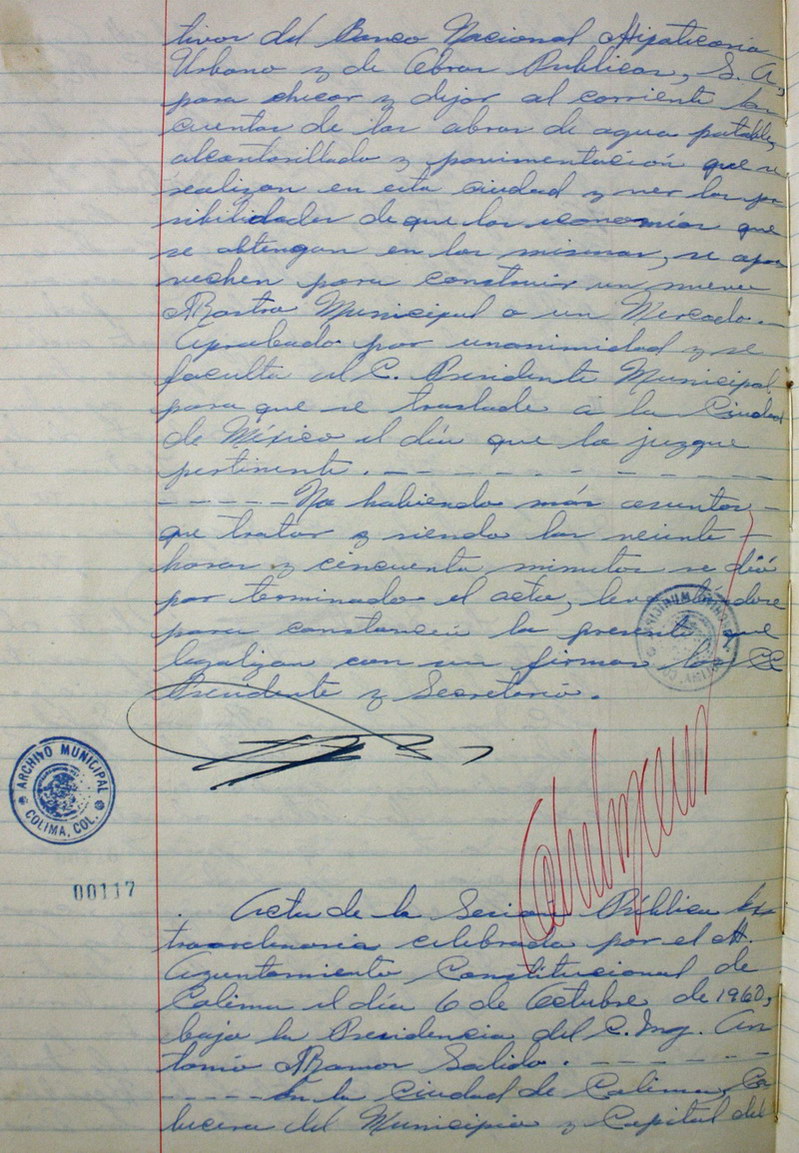 tivos del Banco Nacional Hipotecario
Urbano y de Obras Publicas, S. A,
para checar y dejar al corriente las
cuentas de las obras de agua potable,
alcantarillado y pavimentación que se
realizan en esta ciudad y ver las po
sibilidades de que las economías que
se obtengan en las mismas, se apro
vechen para construir un nuevo
Rastro Municipal o un Mercado.-
Aprobado por unanimidad y se
faculta al C. Presidente Municipal
para que se traslade a la Ciudad
de México el día que lo juzgue
pertinente. - - - - - - - - -
- - - - - No habiendo más asuntos -
que tratar y siendo las veinte -
horas y cincuenta minutos se dió
por terminado el acto, levantándose
para constancia la presente que
legalizan con sus firmas los CC
Presidente y Secretario.
ARCHIVO MUNICIPAL
COLIMA, COL.
00117
Acta de la Sesion Pública Ex
traordinaria celebrada por el H.
Ayuntamiento Constitucional de
Colima el día 6 de Octubre de 1960,
bajo la Presidencia del C. Ing. An
tonio Ramos Salido. - - - - - -
- - - - - En la Ciudad de Colima, Ca
becera del Municipio y Capital del